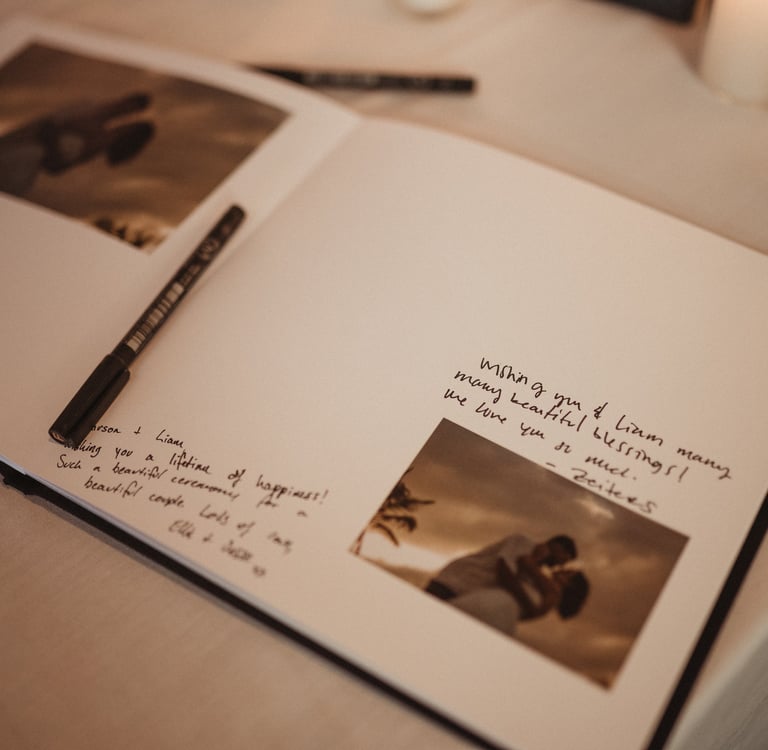 Wishing you & Liam many
many beautiful blessings!
We love you so much.
- Zeiters
+ Liam
wishing you a lifetime of happiness!
Such a beautiful ceremony for a
beautiful couple. Lots of love,